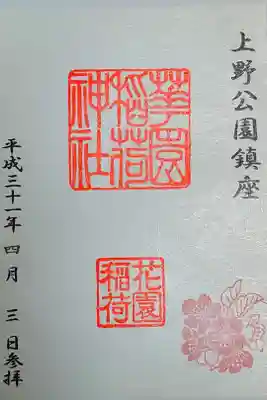 上野公園鎮座
華園
稲荷
神社
花園
稲荷
平成三十一年 四月 三日参拝